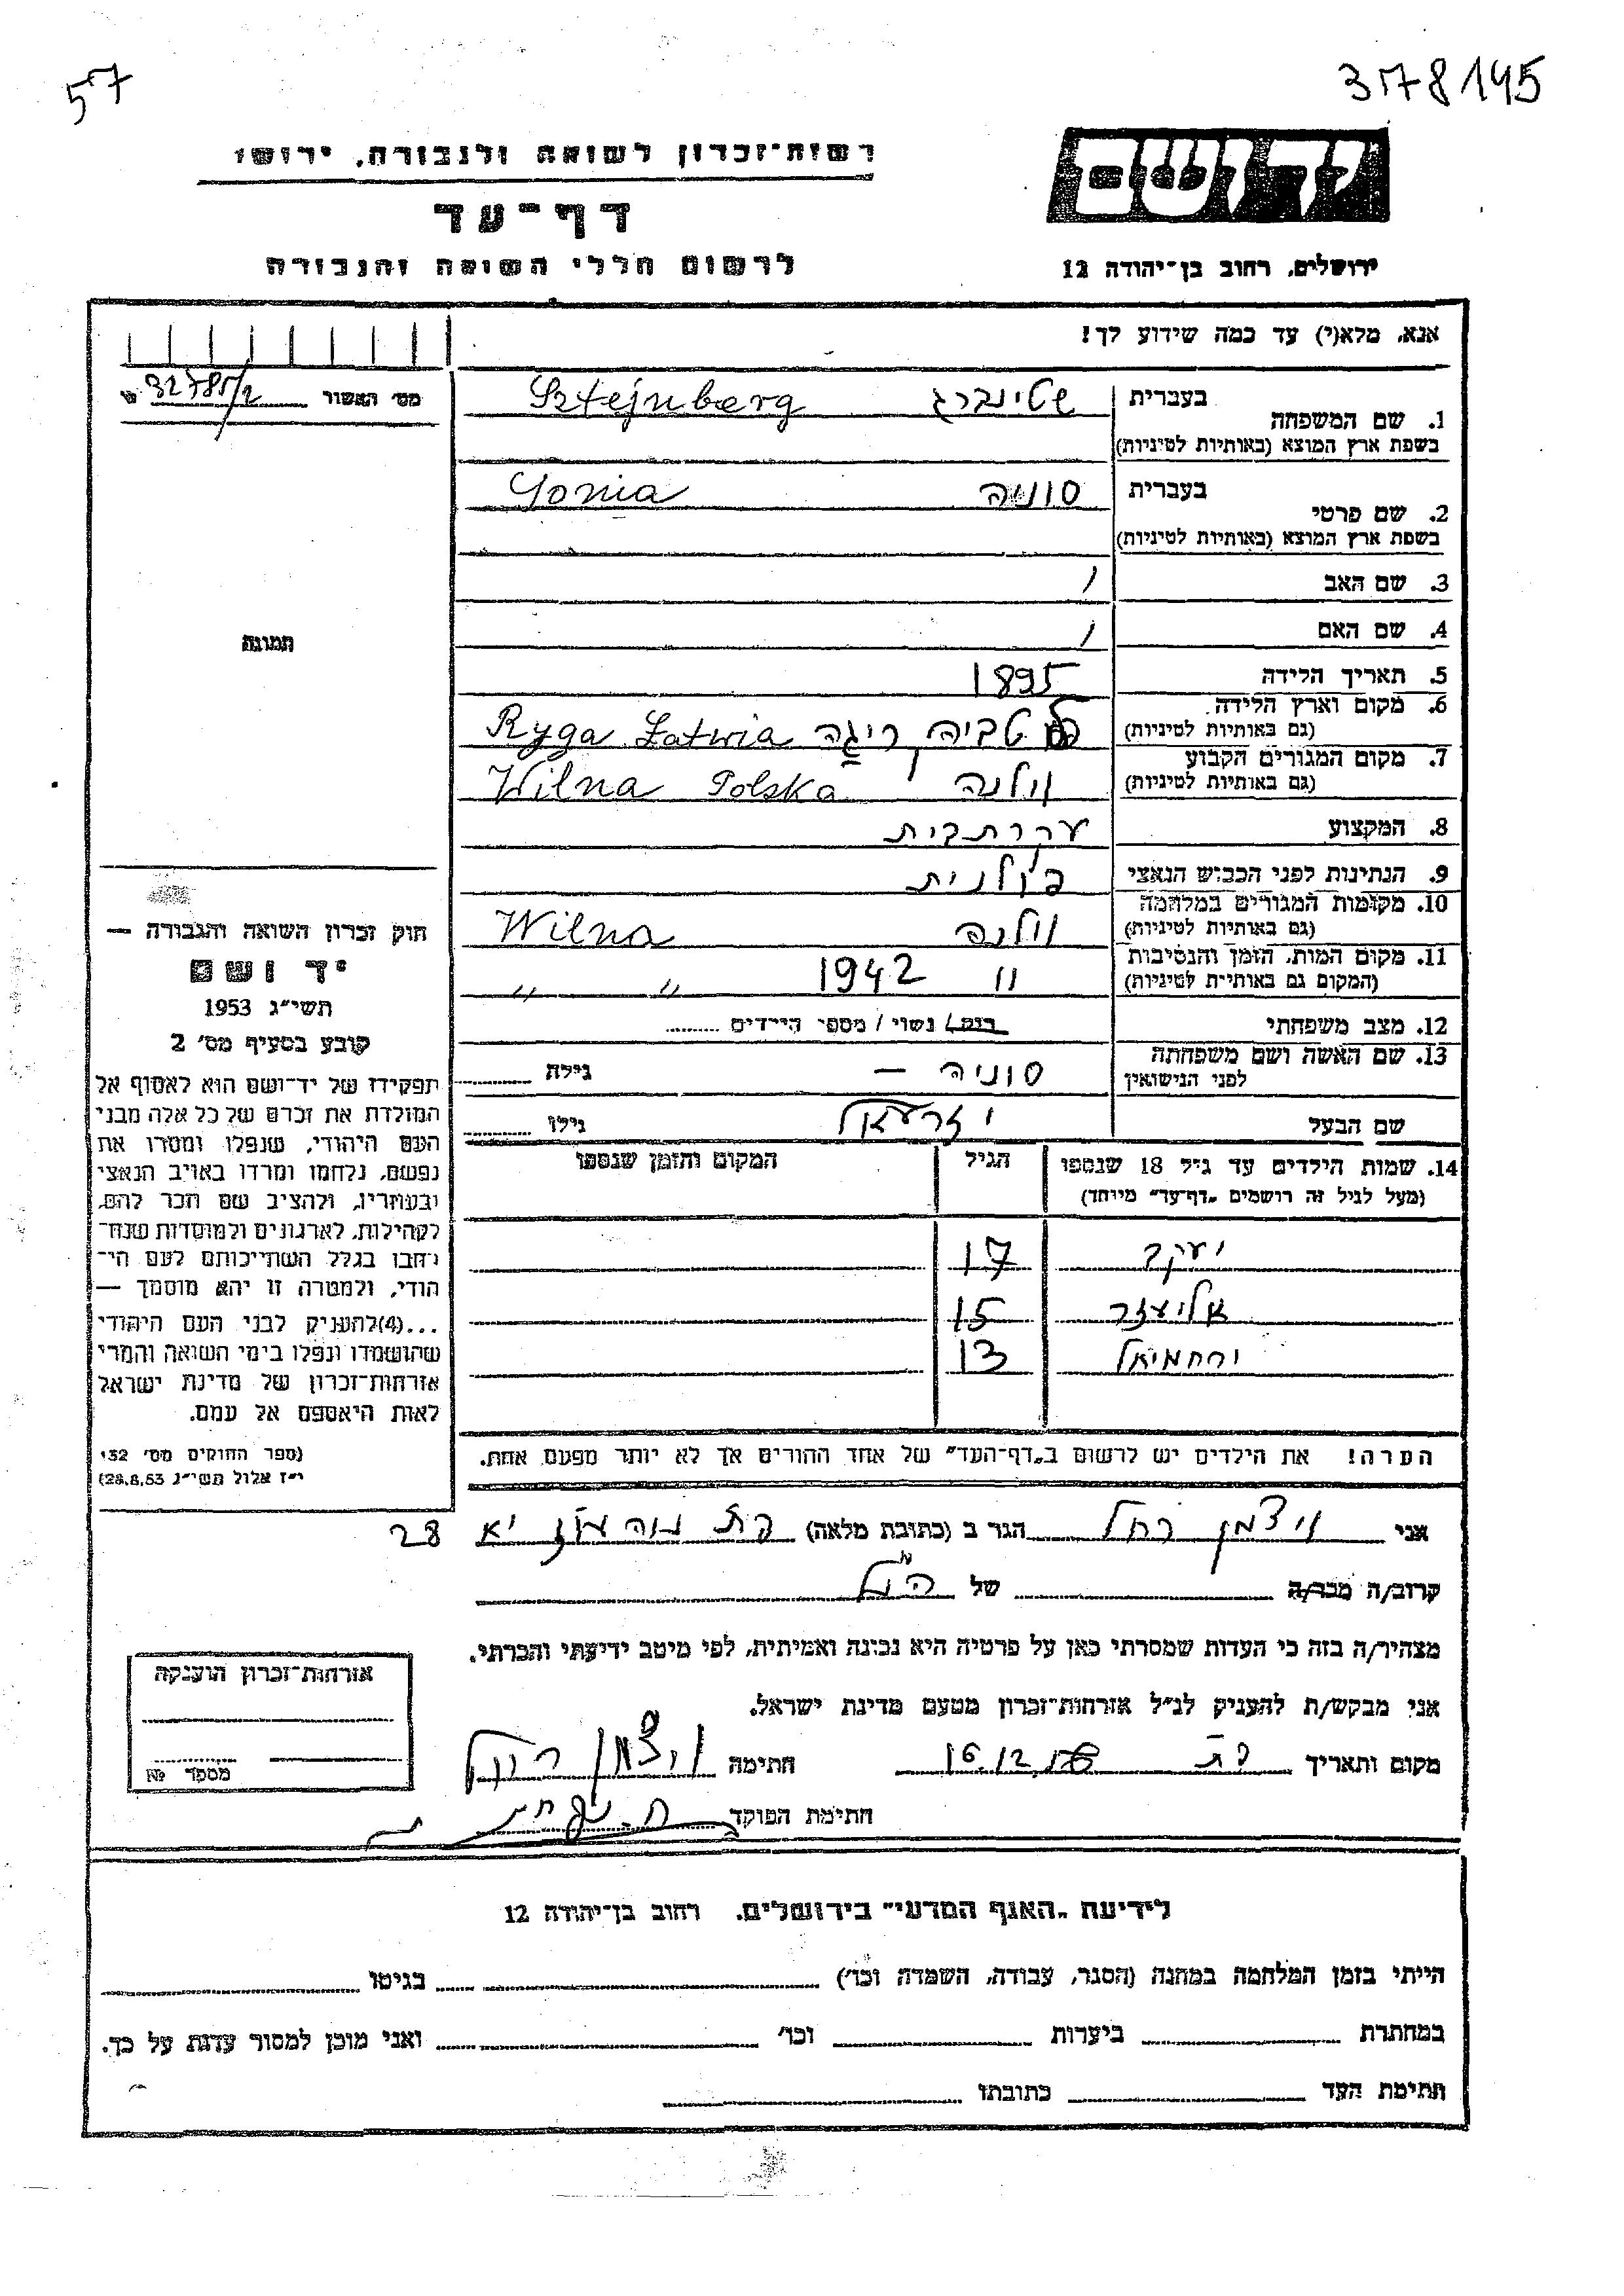 57
3178145
רשות־זכרון לשואה ולגבורה, ירוש׳
יד ושם
דף־עד
לרשום חללי השואה והגבורה
ירושלים, רחוב בן־יהודה 12
אנא, מלא(י) עד כמה שידוע לך!
מס׳ האשור 32785/2
1. שם המשפחה בעברית שטינברג Sztejnberg
בשפת ארץ המוצא (באותיות לטיניות)
2. שם פרטי בעברית סוניה Sonia
בשפת ארץ המוצא (באותיות לטיניות)
3. שם האב /
4. שם האם /
5. תאריך הלידה 1895
6. מקום וארץ הלידה לטביה, ריגה Ryga Latwia
(גם באותיות לטיניות)
7. מקום המגורים הקבוע וילנה Wilna Polska
(גם באותיות לטיניות)
8. המקצוע עקרת בית
9. הנתינות לפני הכבוש הנאצי פולנית
10. מקומות המגורים במלחמה וילנה Wilna
(גם באותיות לטיניות)
11. מקום המות, הזמן והנסיבות " 1942 " "
(המקום גם באותיות לטיניות)
12. מצב משפחתי רוק/ נשוי / מספר הילדים
13. שם האשה ושם משפחתה סוניה — גילה
לפני הנישואין
שם הבעל יזרעאל גילו
14. שמות הילדים עד גיל 18 שנספו הגיל המקום והזמן שנספו
(מעל לגיל זה רושמים „דף־עד״ מיוחד)
יעקב 17
אליעזר 15
ירחמיאל 13
הערה! את הילדים יש לרשום ב„דף־העד״ של אחד ההורים אך לא יותר מפעם אחת.
תמונה
חוק זכרון השואה והגבורה —
יד ושם
תשי״ג 1953
קובע בסעיף מס׳ 2
תפקידו של יד־ושם הוא לאסוף אל
המולדת את זכרם של כל אלה מבני
העם היהודי, שנפלו ומסרו את
נפשם, נלחמו ומרדו באויב הנאצי
ובעוזריו, ולהציב שם וזכר להם,
לקהילות, לארגונים ולמוסדות שנח־
רבו בגלל השתייכותם לעם הי־
הודי, ולמטרה זו יהא מוסמך —
...(4) להעניק לבני העם היהודי
שהושמדו ונפלו בימי השואה והמרי
אזרחות־זכרון של מדינת ישראל
לאות היאספם אל עמם.
(ספר החוקים מס׳ 132
י״ז אלול תשי״ג 28.8.53)
אני ויצמן רחל הגר ב (כתובת מלאה) 28
קרוב/ה מכר/ה של
מצהיר/ה בזה כי העדות שמסרתי כאן על פרטיה היא נכונה ואמיתית, לפי מיטב ידיעתי והכרתי.
אני מבקש/ת להעניק לנ״ל אזרחות־זכרון מטעם מדינת ישראל.
מקום ותאריך 16.12 חתימה ויצמן רחל
חתימת הפוקד
אזרחות־זכרון הוענקה
מספר №
לידיעת „האגף המדעי״ בירושלים, רחוב בן־יהודה 12
הייתי בזמן המלחמה במחנה (הסגר, עבודה, השמדה וכו׳) בגיטו
במחתרת ביערות וכו׳ ואני מוכן למסור עדות על כך.
חתימת העד כתובתו